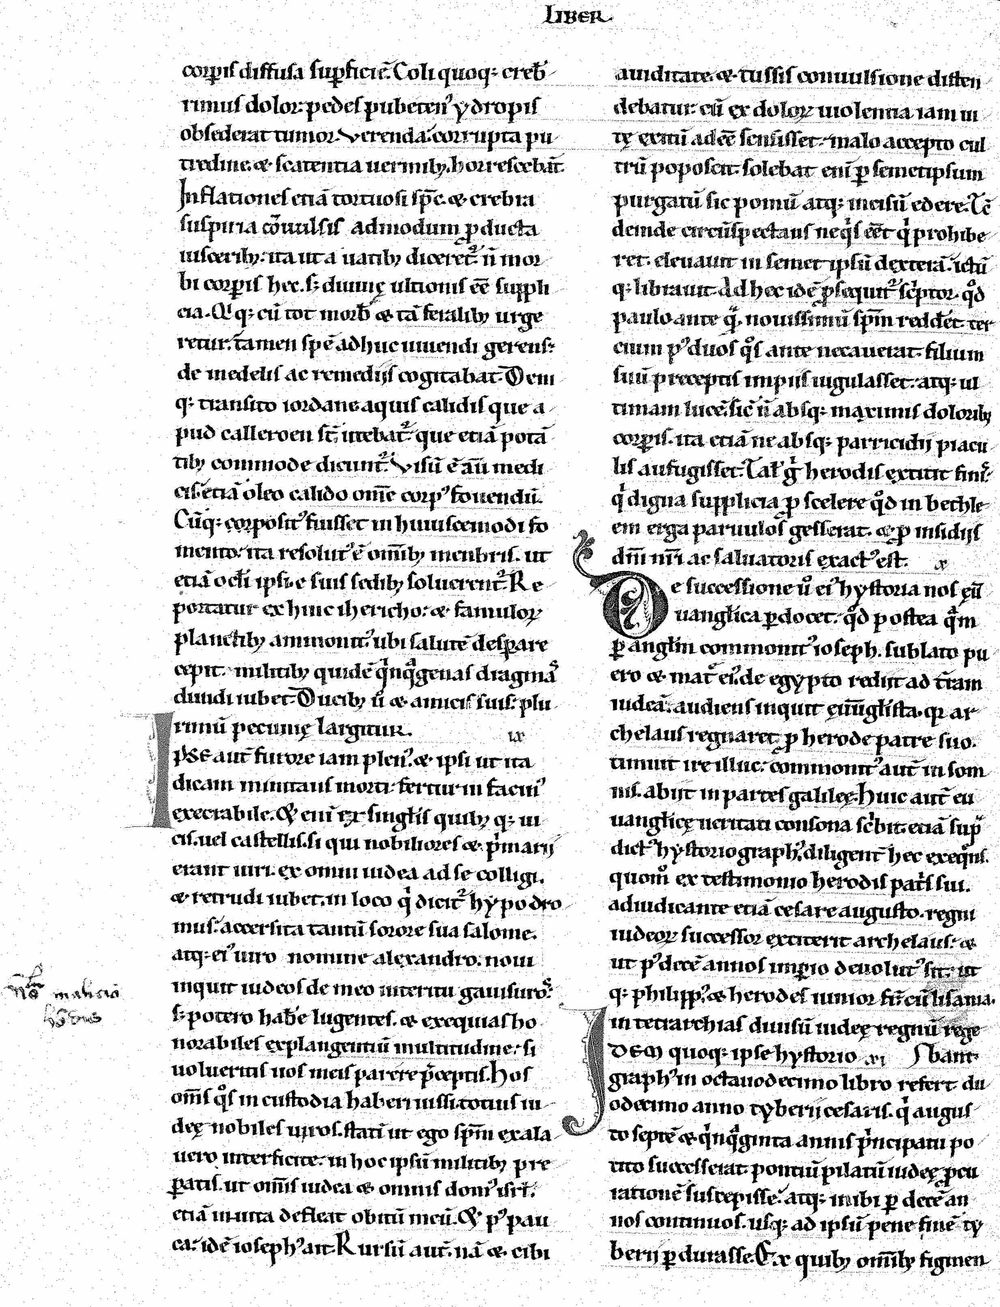 LIBER
corp̄is diffusa sup̄ficiē. Coli quoq; creb
rimus dolor: pedes pubetenꝰ ydropis
obsederat tumor. Verenda. corrupta pu
tredine. & scatentia uermib; horrescebāt.
Inflationes etiā tortuosi sp̄c. & crebra
suspiria cōuulsis admodum ꝓducta
uisceribꝫ: ita ut a uatibꝫ diceret᷑. ñ mor
bi corꝑis hec. s; diuinę ultionis eē suppli
cia. Atq; cū tot morb̄ & tā feralibꝫ urge
retur. tamen spē adhuc uiuendi gerens:
de medelis ac remediis cogitabat. Dem
q; transito iordane aquis calidis que a
pud calleroen st̄. utebat᷑. que etiā potā
tibꝫ commode dicunt᷑. Visū ē aū medi
cis. etiā oleo calido om̄e corpꝰ fouendū.
Cūq; corpositꝰ fuisset in huiuscemodi fo
mento: ita resolutꝰ ē om̄ibꝫ menbris. ut
etiā oc̄li ipsi e suis sedibꝫ soluerent᷑. Re
portatur ex hinc ihericho: & famuloꝝ
planctibꝫ ammonitꝰ. ubi salutē desꝑare
cepit. militibꝫ quidē qͥnqͣgenas dragmaˢ
diuidi iubet. Ducibꝫ ū & amicis suis: plu
rimū pecunię largitur. ix
IPSE aut̄ furore iam plenꝰ. & ipsi ut ita
dicam minitans morti: fertur in facinꝰ
execrabile. & eni EX singl̄is quibꝫ q; ui
cis. uel castellis. si qui nobiliores & pͥmarij
erant uiri. ex omni iudea ad se colligi.
& retrudi iubet. in loco qͥ dicit᷑ hypodro
mus: accersita tantū sorore sua salome.
atq; eiꝰ uiro nomine alexandro: noui
inquit iudeos de meo interitu gauisuroˢ:
s; potero hab̄e lugentes. & exequias ho
norabiles explangentiū multitudine: si
uolueritis uos meis parere p̄ceptis. Hos
om̄s qͦs in custodia haberi iussi. totius iu
deę nobiles uiros. statī ut ego sp̄m exala
uero interficite: in hoc ipsū militibꝫ pre
paratis. ut om̄is iudea & omnis domꝰ isrl̄.
etiā inuita defleat obitū meū. & pꝰ pau
ca: idē iosephꝰ ait. Rursū aut̄. nā & cibi
auiditate. & tussis conuulsione disten
debatur: cū ex doloꝝ uiolentia. iam ui
tę exitū adeē sensisset: malo accepto cul
trū poposcit. solebat enī ꝑ semetipsum
purgatū sic pomū atq; incisū edere. Tē
deinde circūspectans neqͥs eēt qͥ prohibe
ret. eleuauit in semet ipsū dexterā. ictū
q; librauit. Ad hec idē ꝓsequit᷑ sc̄ptor. qđ
paulo ante qͣ. nouissimū sp̄m reddēt. ter
cium pꝰ duos qͦs ante necauerat. filium
suū preceptis impiis iugulasset: atq; ul
timam lucē. sic ñ absq; maximis doloribꝫ
corꝑis. ita etiā ne absq; parricidij piacu
lis aufugisset. Tal̄ gͥ herodis extitit finiˢ.
qͥ digna supplicia ꝓ scelere qđ in bethle
em erga paruulos gesserat. & ꝓ insidijs
dn̄i nr̄i ac saluatoris exactꝰ est. x
De successione ū eiꝰ hystoria nos eū
uangl̄ica ꝑdocet. qđ postea qͣm
ꝑ angl̄m commonitꝰ ioseph. sublato pu
ero & mat̄ eiꝰ. de egypto rediit ad t̄ram
iudeā. audiens inquit euūgl̄ista. qꝛ ar
chelaus regnaret ꝓ herode patre suo.
timuit ire illuc: commonitꝰ aut̄ in som
nis. abiit in partes galileę. Huic aut̄ eu
uangl̄icę ueritati consona sc̄bit. etiā sup̄
dictꝰ hystoriographꝰ. diligent̄ hec exeqn̄s.
quom̄ ex testimonio herodis pat̄s sui.
adiudicante etiā cesare augusto. regni
iudeoꝝ successor extiterit archelaus: &
ut pꝰ decē annos imꝑio deuolutꝰ sit: ut
q; philippꝰ. & herodes iunior fr̄. cū lisania.
in tetrarchias diuisū iudeę regnū rege
IDEM quoq; ipse hystorio xi bant.
graphꝰ in octauodecimo libro refert. du
odecimo anno tyberij cesaris. qͥ augus
to septē & qͥnqͣginta annis pͥncipatū po
tito successerat. pontiū pilatū iudeę ꝓcu
rationē suscepisse: atq; inibi ꝑ decē an
nos continuos. usq; ad ipsū pene finē ty
berij ꝑdurasse. Ex quibꝫ om̄ibꝫ figmen
malicia